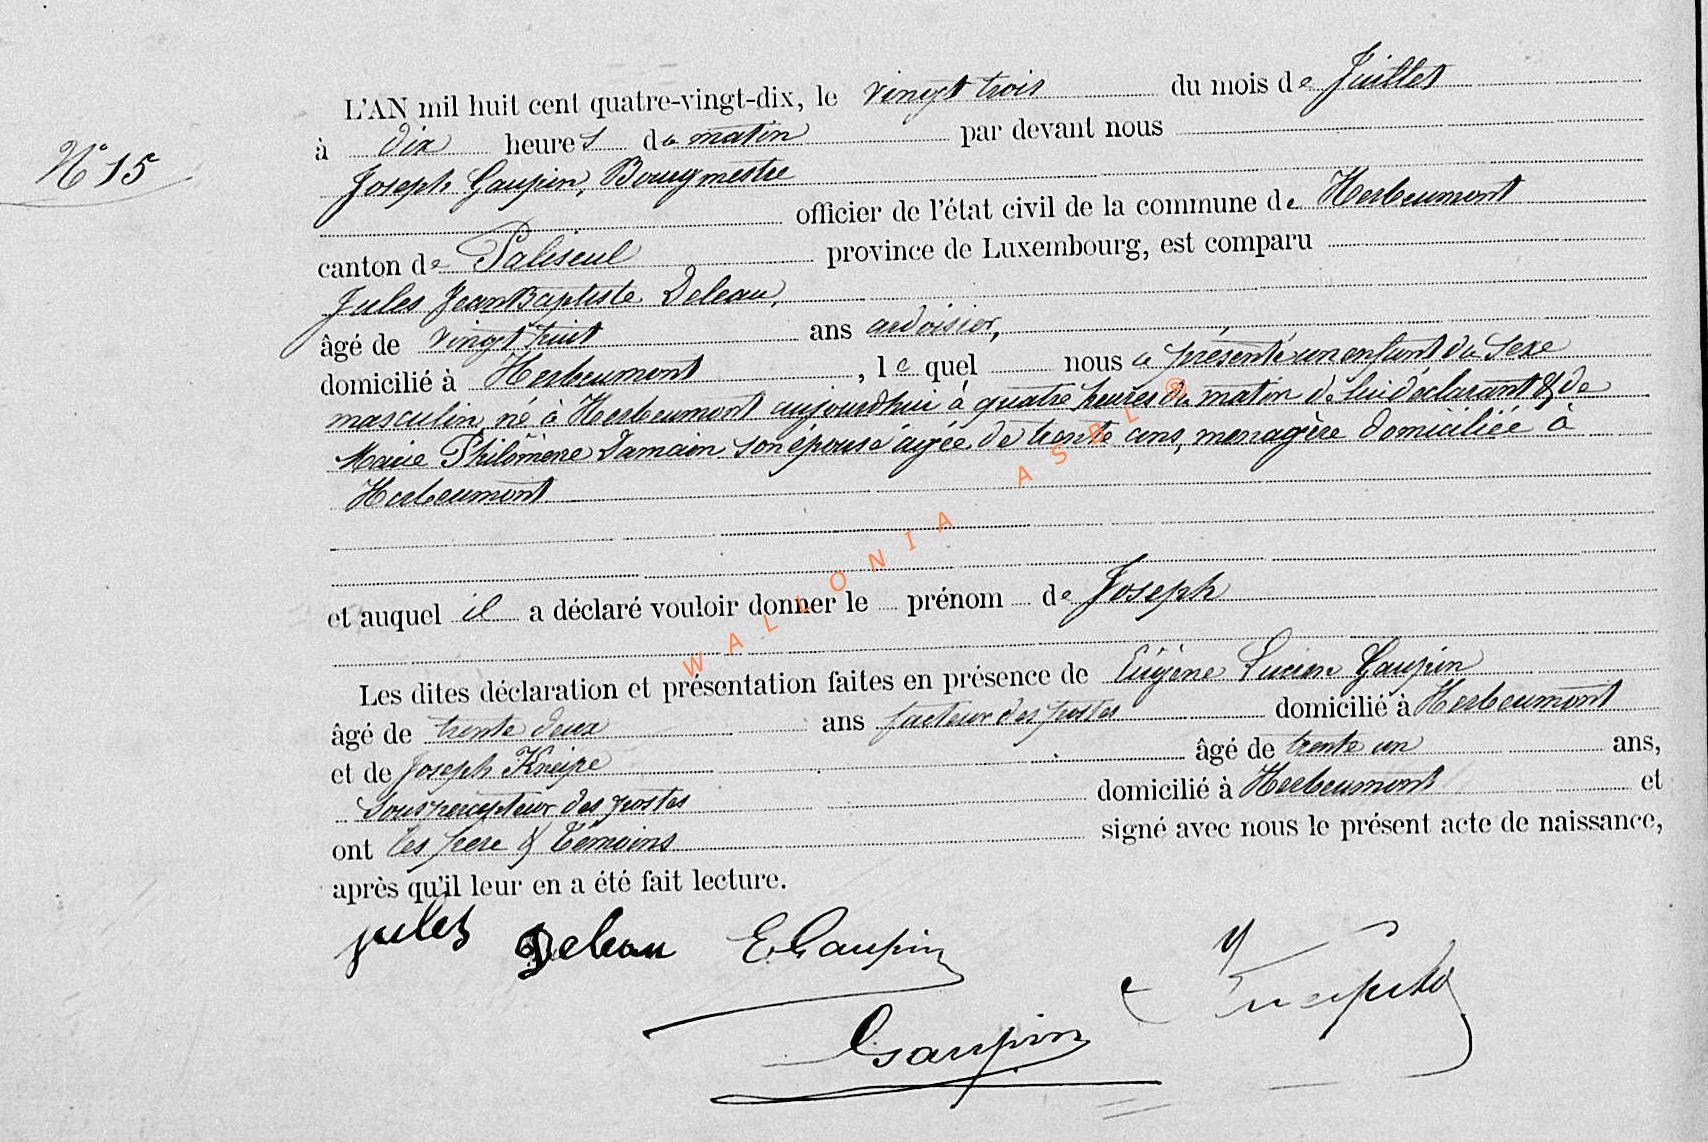 N° 15
L'AN mil huit cent quatre-vingt-dix, le vingt trois du mois de Juillet
à dix heures du matin par devant nous
Joseph Gaupin, Bourgmestre
officier de l'état civil de la commune de Herbeumont
canton de Paliseul province de Luxembourg, est comparu
Jules Jean Baptiste Deleau,
âgé de vingt huit ans ardoisier,
domicilié à Herbeumont, le quel nous a présenté un enfant du sexe
masculin, né à Herbeumont aujourd'hui à quatre heures du matin de lui déclarant & de
Marie Philomène Damain son épouse âgée de trente ans, menagère domiciliée à
Herbeumont
et auquel il a déclaré vouloir donner le prénom de Joseph
Les dites déclaration et présentation faites en présence de Eugène Lucien Gaupin
âgé de trente deux ans facteur des postes domicilié à Herbeumont
et de Joseph Kneipe âgé de trente un ans,
sous percepteur des postes domicilié à Herbeumont et
ont les père & témoins signé avec nous le présent acte de naissance,
après qu'il leur en a été fait lecture.
jules Deleau E Gaupin
Gaupin
WALLONIA ASBL ®